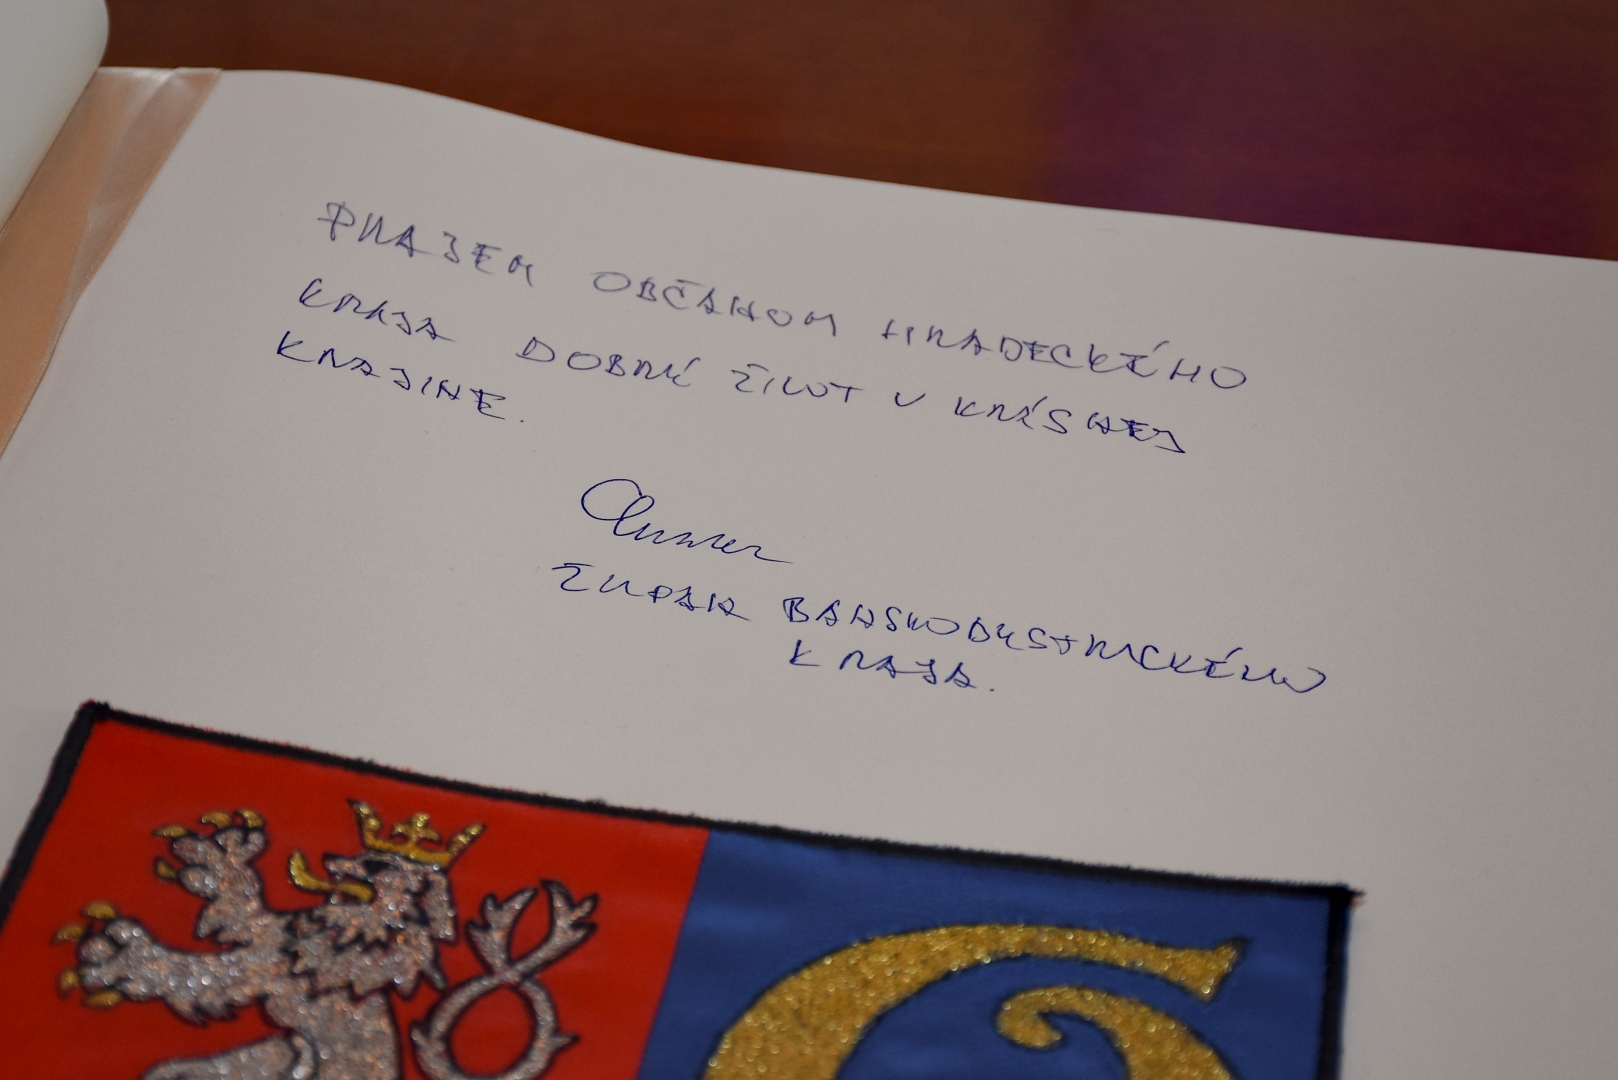 PRAJEM OBČANOM HRADECKÉHO
KRAJA DOBRÝ ŽIVOT V KRÁSNEJ
KRAJINE.
ŽUPAN BANSKOBYSTRICKÉHO
KRAJA.